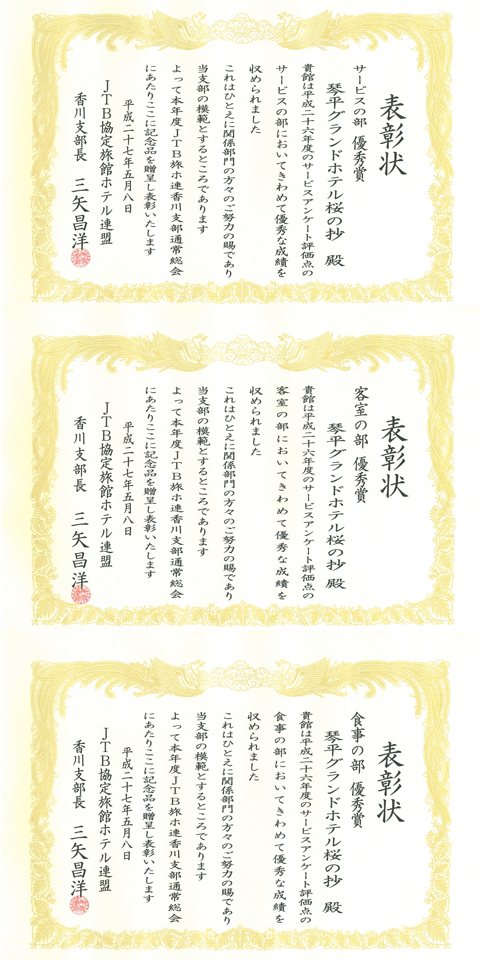 表彰状
サービスの部 優秀賞
琴平グランドホテル桜の抄 殿
貴館は平成二十六年度のサービスアンケート評価点の
サービスの部においてきわめて優秀な成績を
収められました
これはひとえに関係部門の方々のご努力の賜であり
当支部の模範とするところであります
よって本年度JTB旅ホ連香川支部通常総会
にあたりここに記念品を贈呈し表彰いたします
平成二十七年五月八日
JTB協定旅館ホテル連盟
香川支部長 三矢昌洋
表彰状
客室の部 優秀賞
琴平グランドホテル桜の抄 殿
貴館は平成二十六年度のサービスアンケート評価点の
客室の部においてきわめて優秀な成績を
収められました
これはひとえに関係部門の方々のご努力の賜であり
当支部の模範とするところであります
よって本年度JTB旅ホ連香川支部通常総会
にあたりここに記念品を贈呈し表彰いたします
平成二十七年五月八日
JTB協定旅館ホテル連盟
香川支部長 三矢昌洋
表彰状
食事の部 優秀賞
琴平グランドホテル桜の抄 殿
貴館は平成二十六年度のサービスアンケート評価点の
食事の部においてきわめて優秀な成績を
収められました
これはひとえに関係部門の方々のご努力の賜であり
当支部の模範とするところであります
よって本年度JTB旅ホ連香川支部通常総会
にあたりここに記念品を贈呈し表彰いたします
平成二十七年五月八日
JTB協定旅館ホテル連盟
香川支部長 三矢昌洋